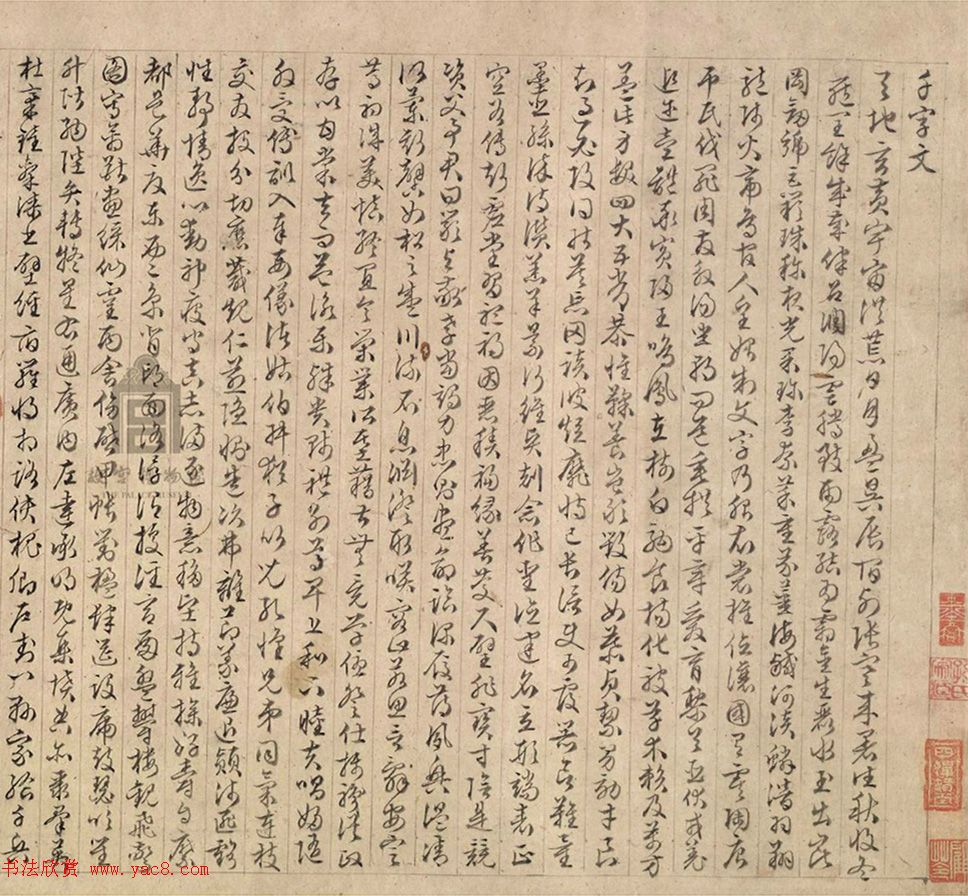 千字文
天地玄黃宇宙洪荒日月盈昃辰宿列張寒來暑往秋收冬
藏閏餘成歲律呂調陽雲騰致雨露結為霜金生麗水玉出崑
岡劍號巨闕珠稱夜光果珍李柰菜重芥薑海鹹河淡鱗潛羽翔
龍師火帝鳥官人皇始制文字乃服衣裳推位讓國有虞陶唐
弔民伐罪周發殷湯坐朝問道垂拱平章愛育黎首臣伏戎羌
遐邇壹體率賓歸王鳴鳳在樹白駒食場化被草木賴及萬方
蓋此身髮四大五常恭惟鞠養豈敢毀傷女慕貞絜男效才良
知過必改得能莫忘罔談彼短靡恃己長信使可覆器欲難量
墨悲絲染詩讚羔羊景行維賢剋念作聖德建名立形端表正
空谷傳聲虛堂習聽禍因惡積福緣善慶尺璧非寶寸陰是競
資父事君曰嚴與敬孝當竭力忠則盡命臨深履薄夙興溫凊
似蘭斯馨如松之盛川流不息淵澄取映容止若思言辭安定
篤初誠美慎終宜令榮業所基藉甚無竟學優登仕攝職從政
存以甘棠去而益詠樂殊貴賤禮別尊卑上和下睦夫唱婦隨
外受傅訓入奉母儀諸姑伯叔猶子比兒孔懷兄弟同氣連枝
交友投分切磨箴規仁慈隱惻造次弗離節義廉退顛沛匪虧
性靜情逸心動神疲守真志滿逐物意移堅持雅操好爵自縻
都邑華夏東西二京背邙面洛浮渭據涇宮殿盤鬱樓觀飛驚
圖寫禽獸畫綵仙靈丙舍傍啟甲帳對楹肆筵設席鼓瑟吹笙
升階納陛弁轉疑星右通廣內左達承明既集墳典亦聚群英
杜稿鍾隸漆書壁經府羅將相路俠槐卿戶封八縣家給千兵
书法欣赏 www.yac8.com